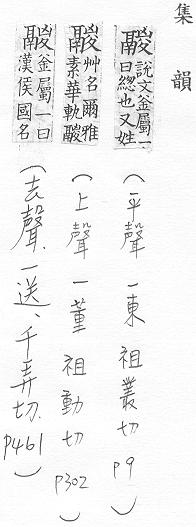 集韻
鬷說文釜屬一曰緫也又姓(平聲 一東 祖叢切 p9)
鬷艸名爾雅素華軌鬷(上聲 一董 祖動切 p302)
鬷釜屬一曰漢侯國名(去聲 一送、千弄切. p461)